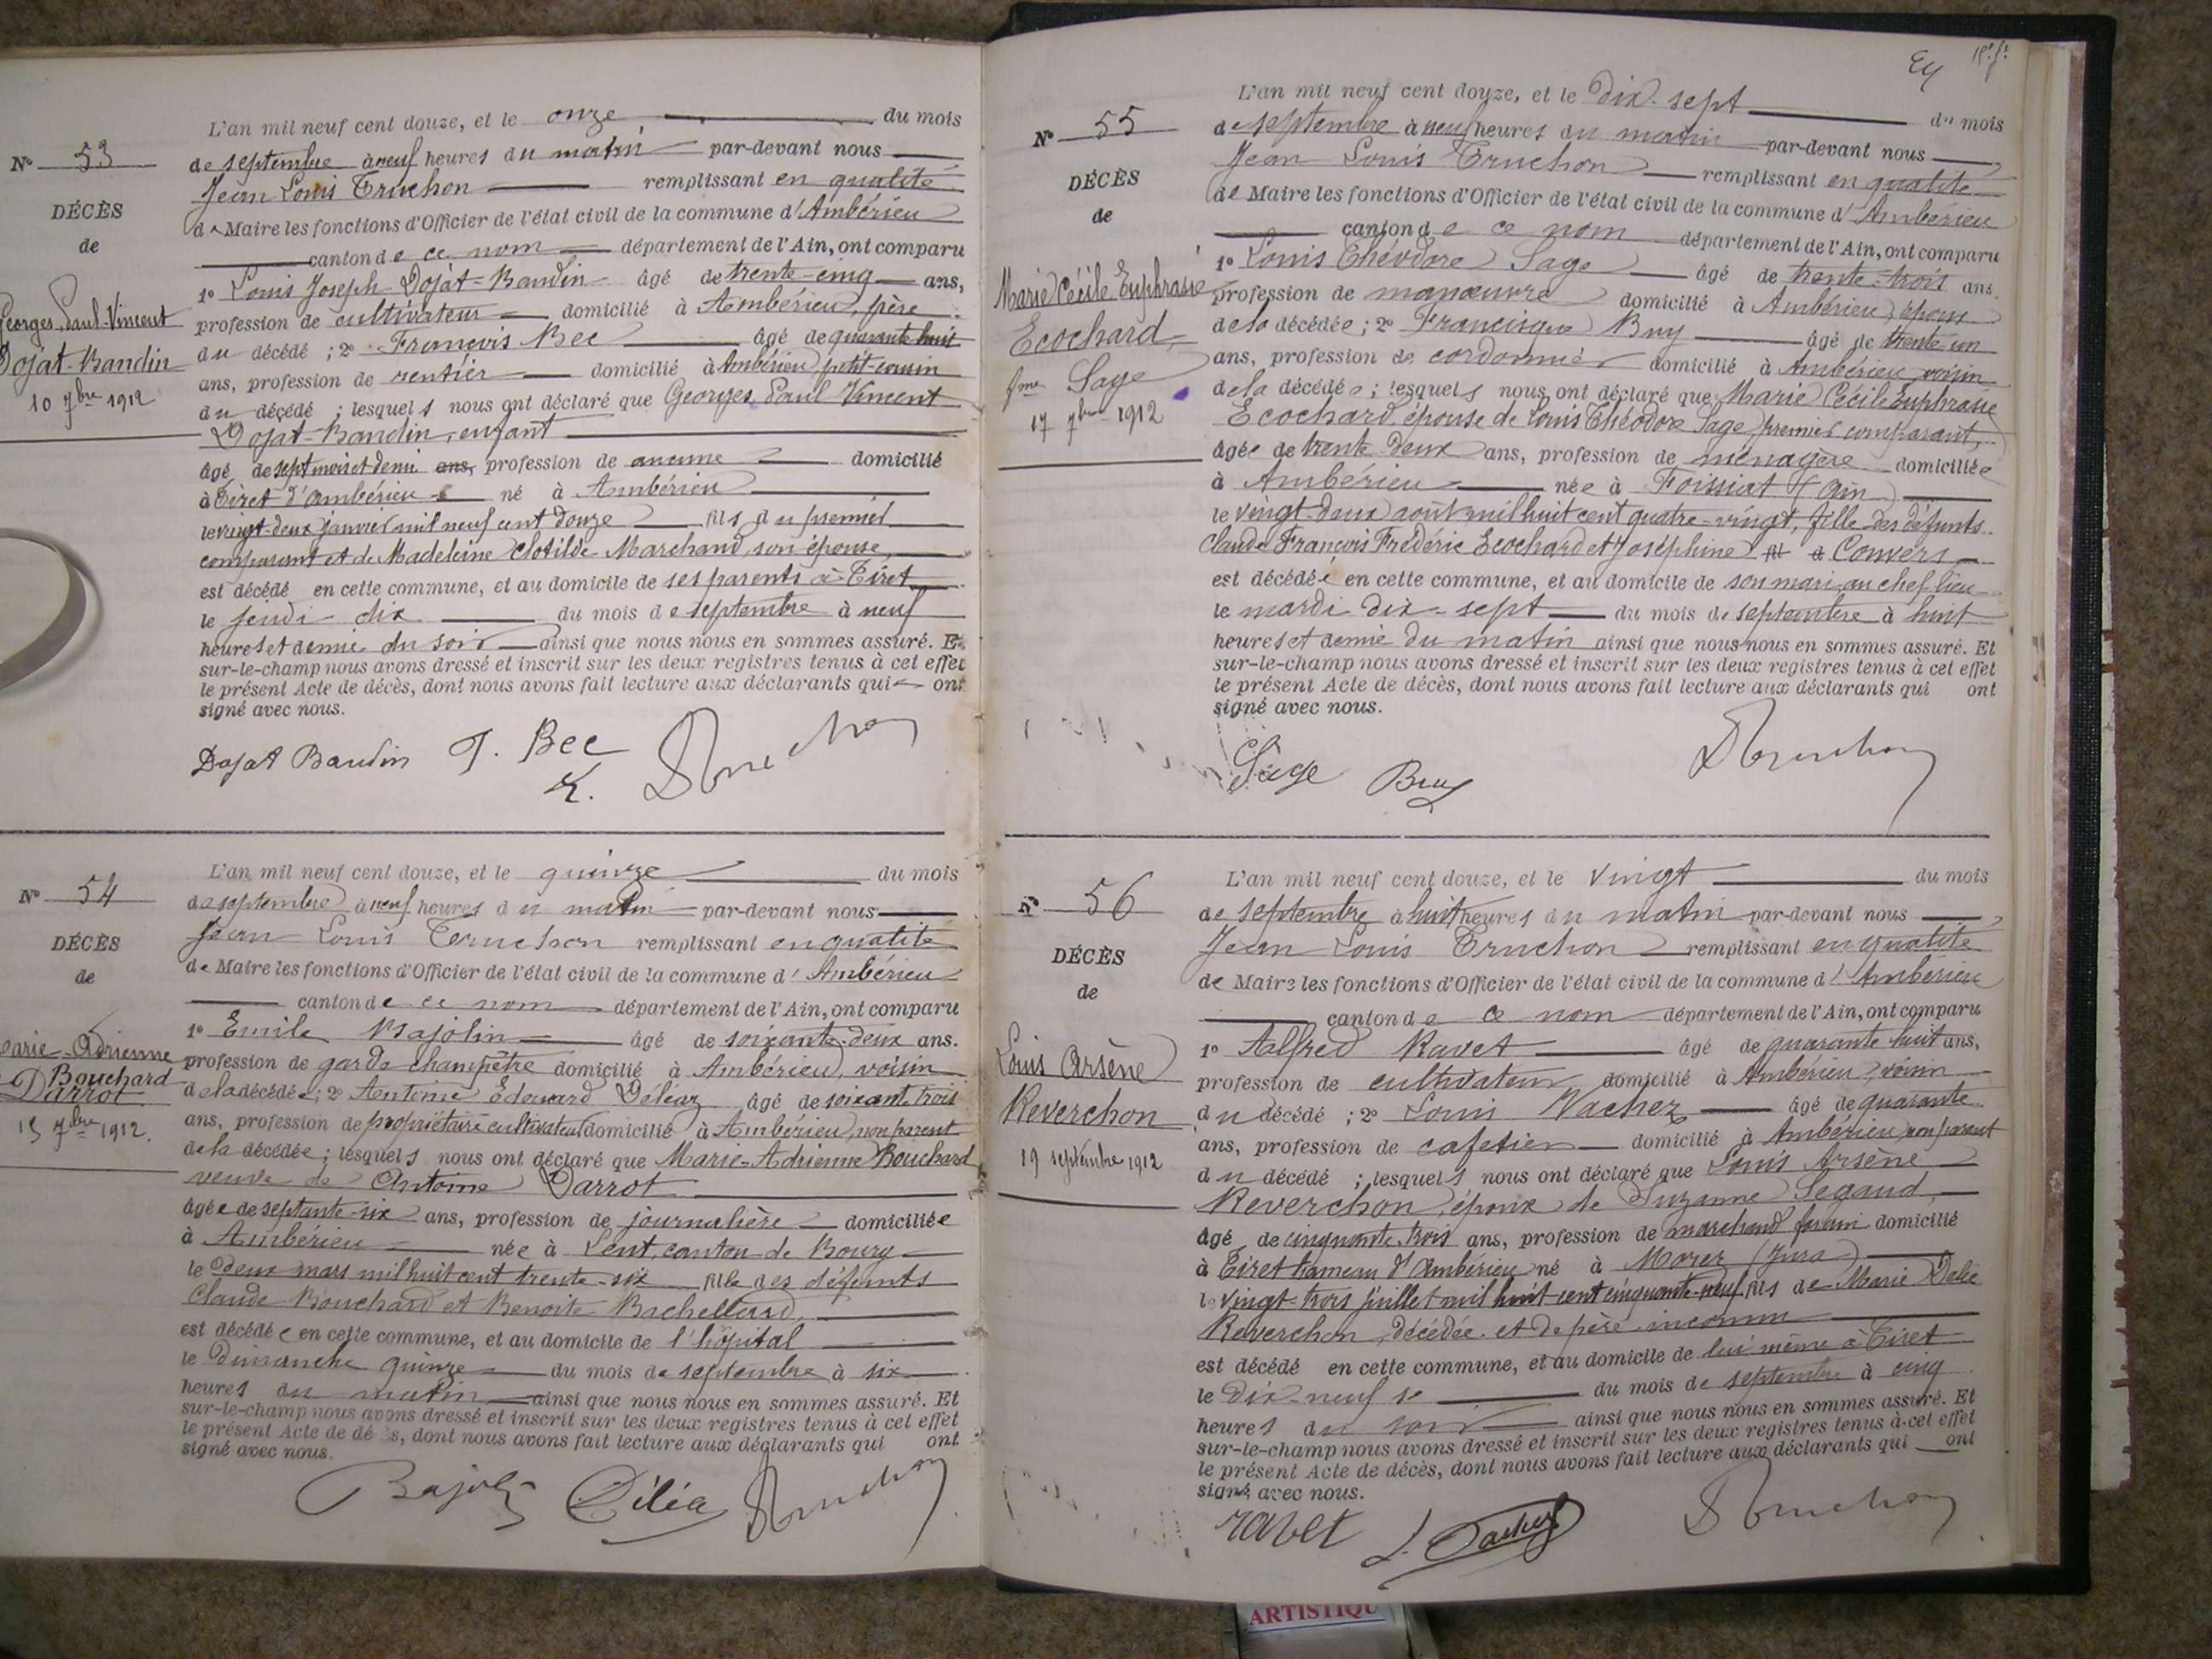 L'an mil neuf cent douze, et le onze du mois
N° 53
de septembre à neuf heures du matin par-devant nous
Jean Louis Truchon remplissant en qualité
DÉCÈS
de Maire les fonctions d'Officier de l'état civil de la commune d'Ambérieu
de
canton de ce nom département de l'Ain, ont comparu
1° Louis Joseph Dojat-Baudin âgé de trente-cinq ans,
Georges Paul Vincent
profession de cultivateur domicilié à Ambérieu, père
Dojat-Baudin
du décédé ; 2° François Bec âgé de quarante huit
10 7bre 1912
ans, profession de rentier domicilié à Ambérieu, petit-cousin
du décédé ; lesquels nous ont déclaré que Georges Paul Vincent
Dojat-Baudin, enfant
âgé de sept mois et demi ans, profession de aucune domicilié
à Tiret d'Ambérieu né à Ambérieu
le vingt-deux janvier mil neuf cent douze fils du premier
comparant et de Madeleine Clotilde Marchand, son épouse,
est décédé en cette commune, et au domicile de ses parents à Tiret
le jeudi dix du mois de septembre à neuf
heures et demie du soir ainsi que nous nous en sommes assuré. Et
sur-le-champ nous avons dressé et inscrit sur les deux registres tenus à cet effet
le présent Acte de décès, dont nous avons fait lecture aux déclarants qui ont
signé avec nous.
Dojat Baudin F. Bec Truchon
L'an mil neuf cent douze, et le quinze du mois
N° 54
de septembre à neuf heures du matin par-devant nous
Jean Louis Truchon remplissant en qualité
DÉCÈS
de Maire les fonctions d'Officier de l'état civil de la commune d'Ambérieu
de
canton de ce nom département de l'Ain, ont comparu
1° Emile Bajolin âgé de soixante-deux ans.
Marie-Adrienne
profession de garde champêtre domicilié à Ambérieu, voisin
Bouchard
Darrot
de la décédée ; 2° Antoine Edouard Déléaz âgé de soixante trois
15 7bre 1912.
ans, profession de propriétaire cultivateur domicilié à Ambérieu, non parent
de la décédée ; lesquels nous ont déclaré que Marie-Adrienne Bouchard
veuve de Antoine Darrot
âgée de septante-six ans, profession de journalière domiciliée
à Ambérieu née à Lent, canton de Bourg
le deux mars mil huit cent trente-six fille des défunts
Claude Bouchard et Benoite Bachellard,
est décédée en cette commune, et au domicile de l'hôpital
le Dimanche quinze du mois de septembre à six
heures du matin ainsi que nous nous en sommes assuré. Et
sur-le-champ nous avons dressé et inscrit sur les deux registres tenus à cet effet
le présent Acte de décès, dont nous avons fait lecture aux déclarants qui ont
signé avec nous.
Bajolin Déléa Truchon
L'an mil neuf cent douze, et le dix-sept du mois
N° 55
de septembre à neuf heures du matin par-devant nous
Jean Louis Truchon remplissant en qualité
DÉCÈS
de Maire les fonctions d'Officier de l'état civil de la commune d'Ambérieu
de
canton de ce nom département de l'Ain, ont comparu
1° Louis Théodore Sage âgé de trente-trois ans,
Marie Cécile Euphrasie
profession de manœuvre domicilié à Ambérieu, époux
Ecochard,
de la décédée ; 2° Francisque Buy âgé de trente un
fme Sage
ans, profession de cordonnier domicilié à Ambérieu, voisin
17 7bre 1912
de la décédée ; lesquels nous ont déclaré que Marie Cécile Euphrasie
Ecochard, épouse de Louis Théodore Sage, premier comparant,
âgée de trente-deux ans, profession de ménagère domiciliée
à Ambérieu née à Foissiat (Ain)
le vingt-deux août mil huit cent quatre-vingt, fille des défunts
Claude François Frédéric Ecochard et Joséphine Convers
est décédée en cette commune, et au domicile de son mari au chef-lieu
le mardi dix-sept du mois de septembre à huit
heures et demie du matin ainsi que nous nous en sommes assuré. Et
sur-le-champ nous avons dressé et inscrit sur les deux registres tenus à cet effet
le présent Acte de décès, dont nous avons fait lecture aux déclarants qui ont
signé avec nous.
Sage Buy Truchon
L'an mil neuf cent douze, et le vingt du mois
N° 56
de septembre à huit heures du matin par-devant nous
Jean Louis Truchon remplissant en qualité
DÉCÈS
de Maire les fonctions d'Officier de l'état civil de la commune d'Ambérieu
de
canton de ce nom département de l'Ain, ont comparu
1° Alfred Ravet âgé de quarante huit ans,
Louis Arsène
profession de cultivateur domicilié à Ambérieu, voisin
Reverchon
du décédé ; 2° Louis Vachez âgé de quarante
19 septembre 1912
ans, profession de cafetier domicilié à Ambérieu, non parent
du décédé ; lesquels nous ont déclaré que Louis Arsène
Reverchon, époux de Suzanne Segaud,
âgé de cinquante-trois ans, profession de marchand forain domicilié
à Tiret hameau d'Ambérieu né à Morez (Jura)
le vingt-trois juillet mil huit cent cinquante-neuf fils de Marie Délie
Reverchon, décédée et de père inconnu
est décédé en cette commune, et au domicile de lui même à Tiret
le dix-neuf se du mois de septembre à cinq
heures du soir ainsi que nous nous en sommes assuré. Et
sur-le-champ nous avons dressé et inscrit sur les deux registres tenus à cet effet
le présent Acte de décès, dont nous avons fait lecture aux déclarants qui ont
signé avec nous.
ravet L. Vachez Truchon
ARTISTIQU